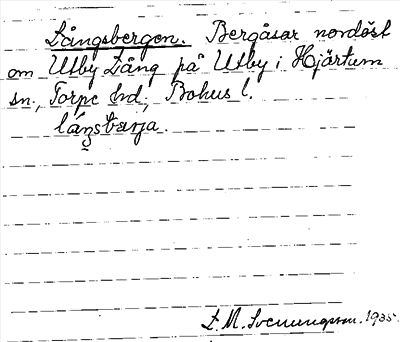 Långsbergen. Bergåsar nordöst
om Utby Lång på Utby i Hjärtum
sn., Torpe hd, Bohus l.
lángsbærja.
L. M. Svenungsson. 1935.